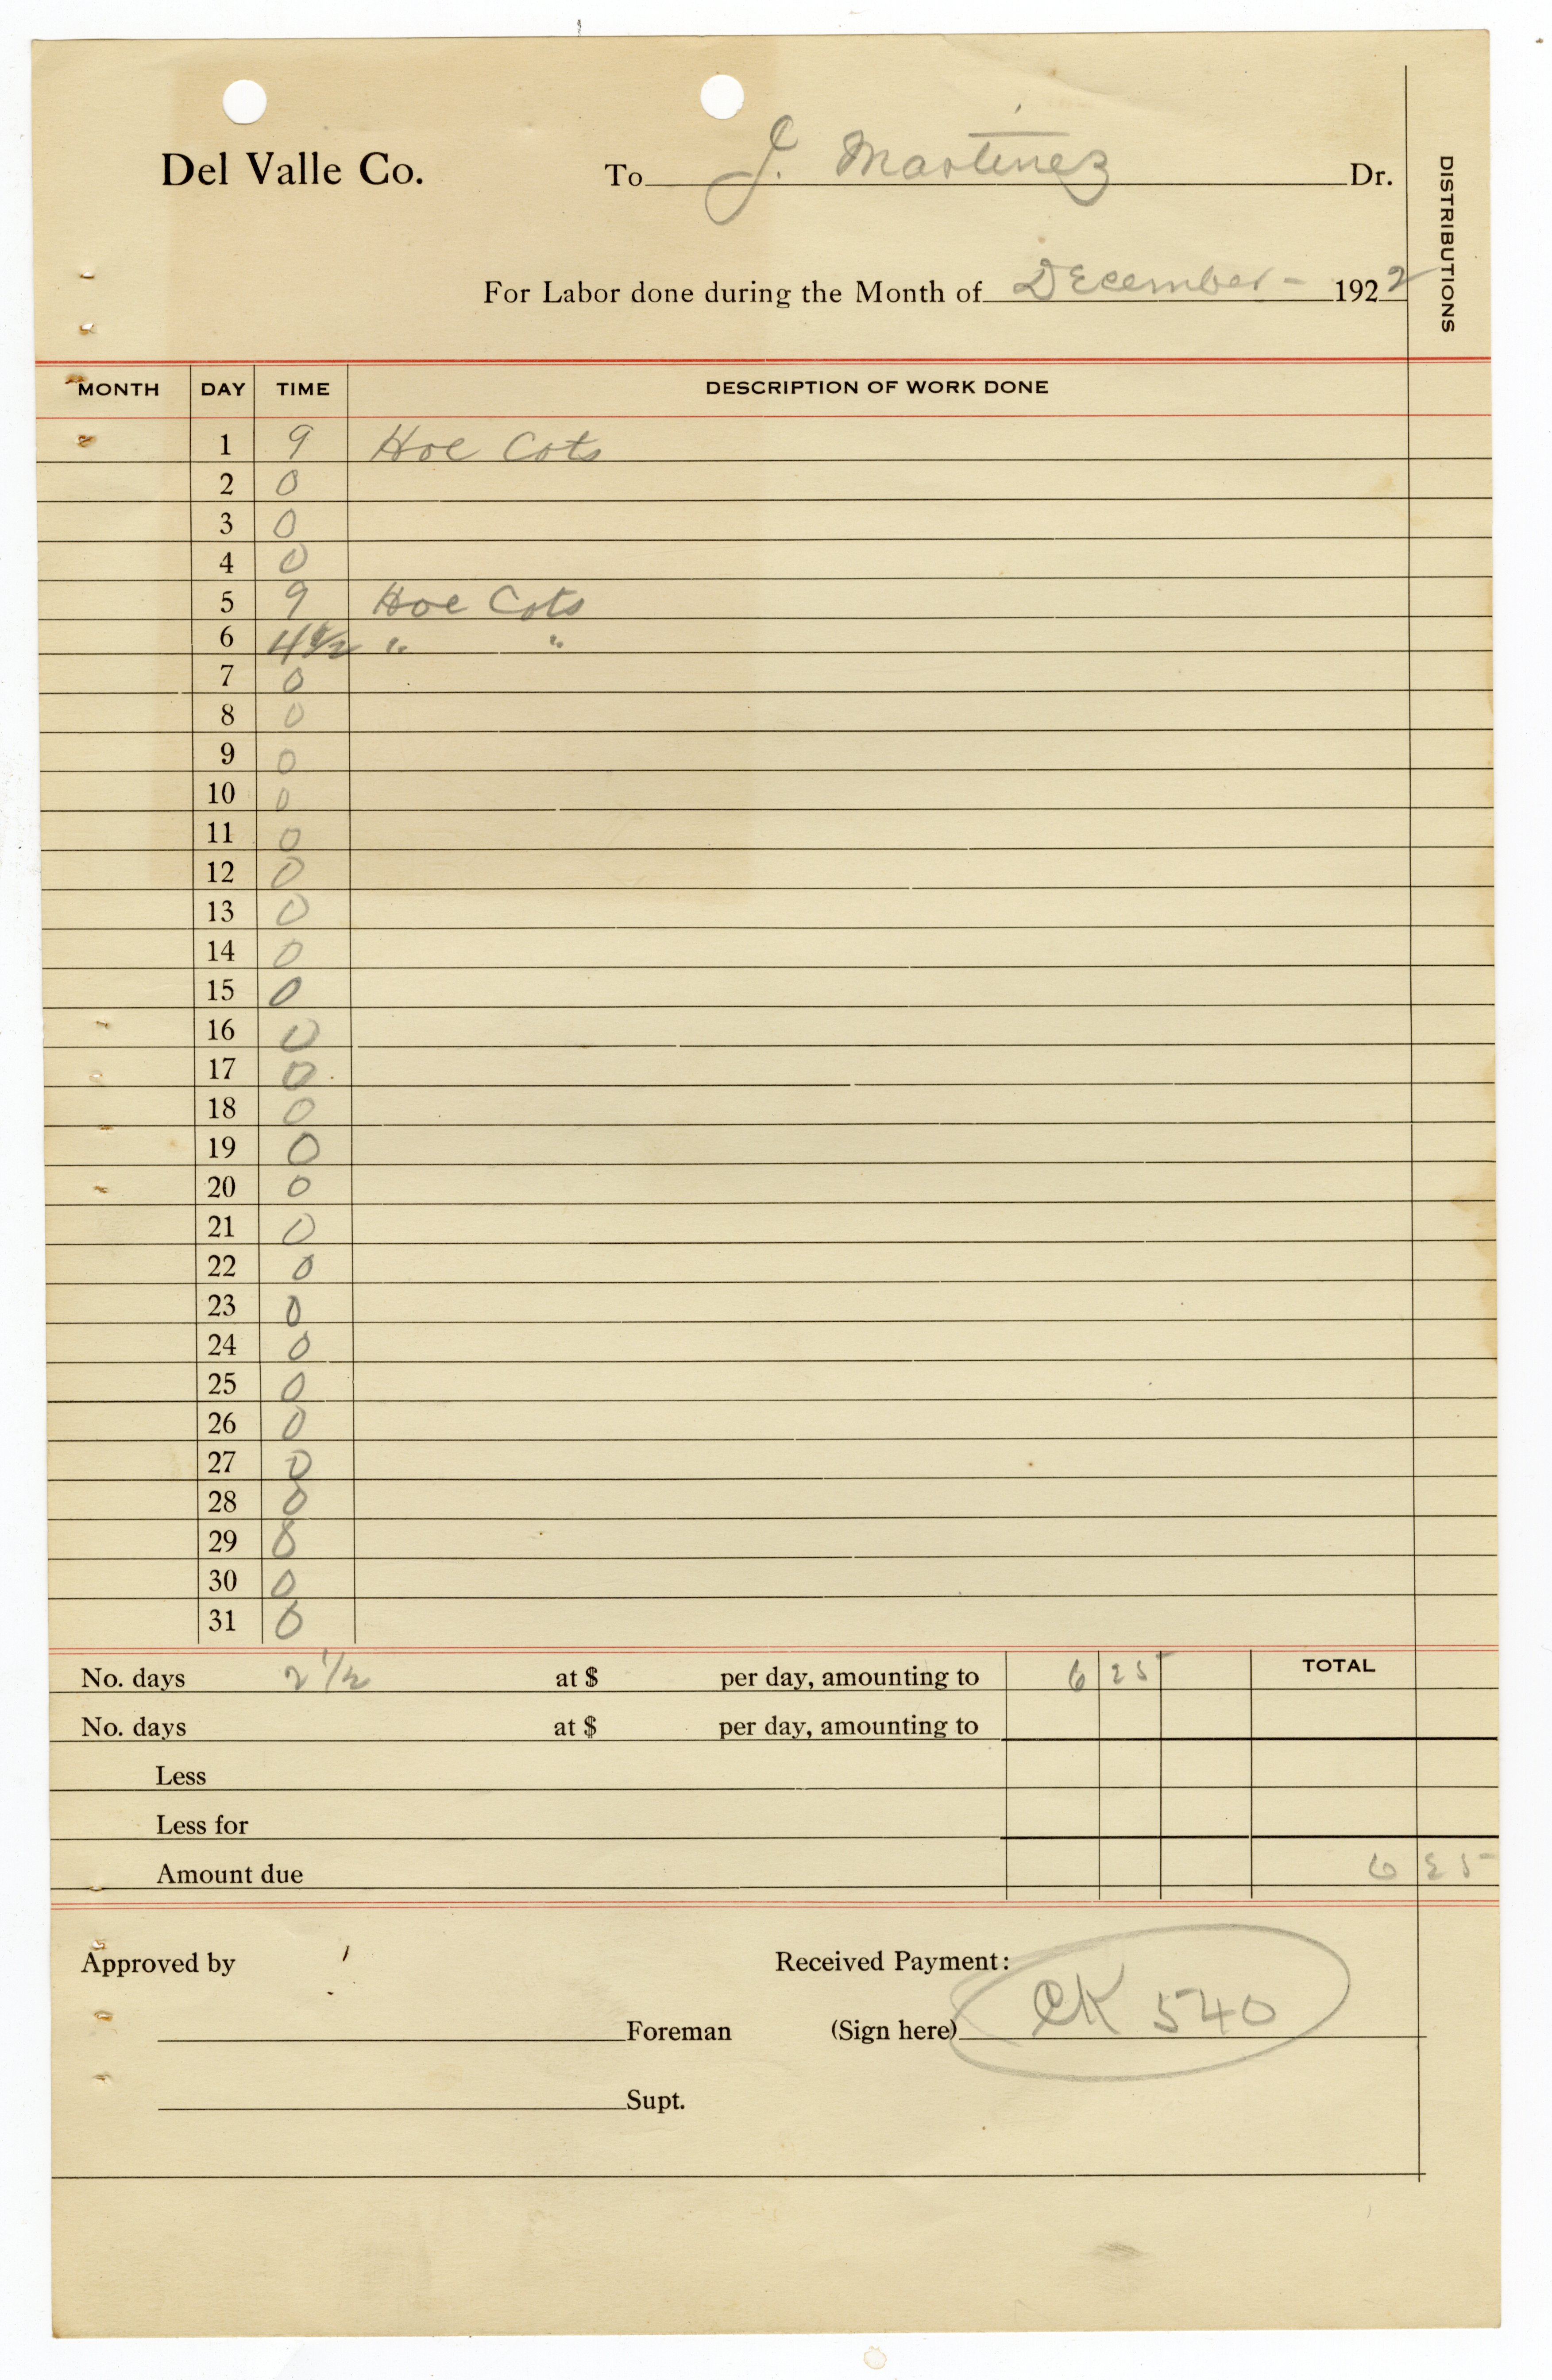 Del Valle Co. To J. Martinez Dr.
DISTRIBUTIONS
For Labor done during the Month of December - 1922
MONTH DAY TIME DESCRIPTION OF WORK DONE
1 9 Hoe Cots
2 0
3 0
4 0
5 9 Hoe Cots
6 4 1/2 " "
7 0
8 0
9 0
10 0
11 0
12 0
13 0
14 0
15 0
16 0
17 0
18 0
19 0
20 0
21 0
22 0
23 0
24 0
25 0
26 0
27 0
28 0
29 0
30 0
31 0
No. days 2 1/2 at $ per day, amounting to 6 25 TOTAL
No. days at $ per day, amounting to
Less
Less for
Amount due 6 25
Approved by Received Payment:
Foreman (Sign here) CK 540
Supt.